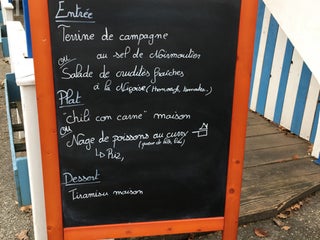 Entrée
Terrine de campagne
au sel de Noirmoutier
ou
Salade de crudités fraîches
à la Niçoise (
Plat
"chili con carne" maison
ou
Nage de poissons au curry
Riz,
Dessert
Tiramisu maison